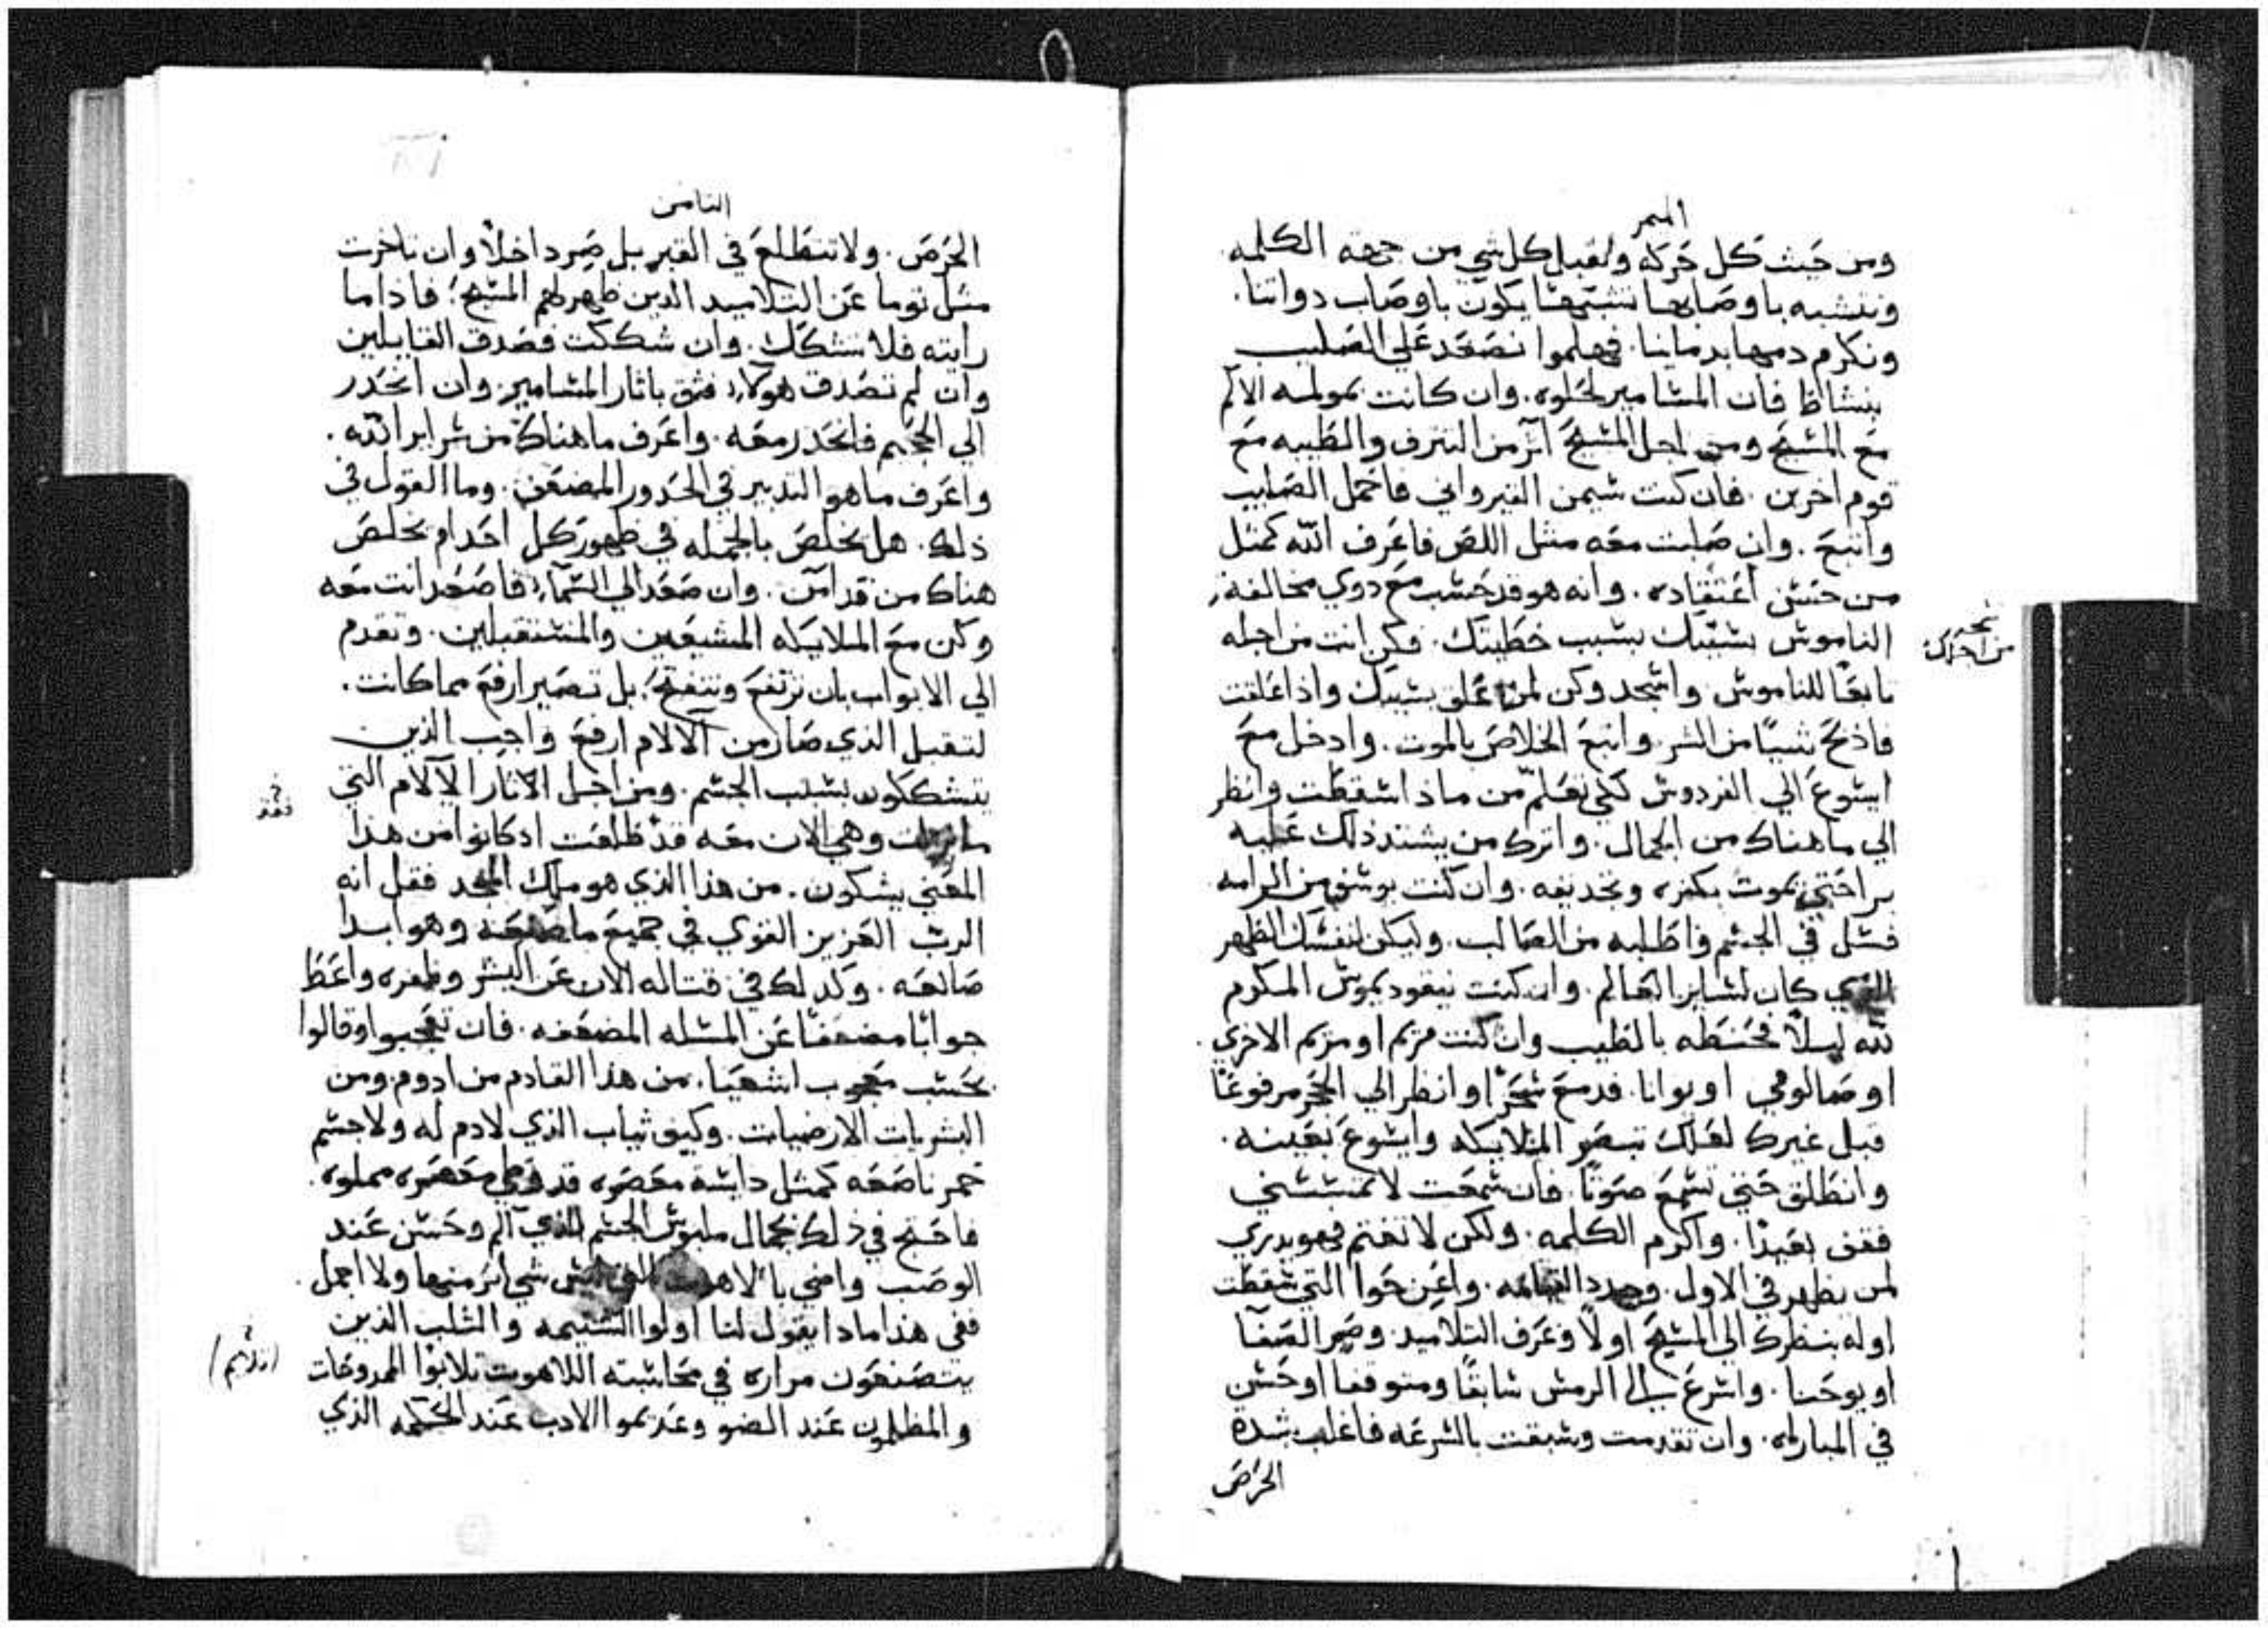 الميمر
ومن حيث كل حركه ولنقبل كل شي من جهة الكلمه
ونتشبه باوصابها تشبهًا يكون باوصاب دواتنا.
ونكرم دمها بدماينا. فهلموا نصعد علي الصليب
بنشاط فان المسامير لحلوه. وان كانت مولمه الالم
مع المسيح ومن اجل المسيح آثر من الترف والطيبه مع
قوم اخرين. فان كنت سيمن القيرواني فاحمل الصليب
واتبع. وان صلبت معه مثل اللص فاعرف الله كمثل
من حسن اعتقاده. وانه هو قد حسب مع دوي مخالفة
الناموس بسببك بسبب خطيتك. فكن انت من اجله
نسخه من اجلك
تابعًا للناموس واسجد وكن لمن علق بسببك واذا علقت
فاذبح شيًا من الشر واتبع الخلاص بالموت. وادخل مع
ايسوع الي الفردوس لكي تعلم من ماذا اسقطت وانظر
الي ما هناك من الجمال. واترك من يسند ذلك عليه
برا حتي يموت بكفره وتجديفه. وان كنت يوسف من الرامه
فسل في الجسم واطلبه من الصالب. وليكن لنفسك الطهر
الذي كان لساير العالم. وان كنت نيقوديموس المكرم
لله ليلاً فحنطه بالطيب وان كنت مريم او مريم الاخري.
او صالومي او يوانا. فدمع سحرًا وانظر الي الحجر مرفوعًا
قبل غيرك لعلك تبصر الملايكه وايسوع بعينه.
وانطلق حتي تسمع صوتًا. فان سمعت لا تمسسني
فقف بعيدًا. واكرم الكلمه. ولكن لا تغتم فهو يدري
لمن يظهر في الاول. وجدد القيامه. واعن حوا التي سقطت
اوله بنظرك الي المسيح اولاً وعرف التلاميد. وصر الصفا
او يوحنا. واسرع الي الرمس سابقًا ومتوقفا او حسن
في المباراه. وان تقدمت وسبقت بالسرعه فاغلب بشدة
الحرص
الثامن
الحرص. ولا تتطلع في القبر بل صر داخلاً وان تاخرت
مثل توما عن التلاميد الدين ظهر لهم المسيح؛ فاذا ما
رايته فلا تتشكك. وان شككت فصدق القايلين
وان لم تصدق هولاء فثق باثار المسامير. وان انحدر
الي الجحيم فانحدر معه. واعرف ما هناك من سراير الله.
واعرف ما هو التدبير في الحدور المضعف. وما القول في
ذلك. هل يخلص بالجمله في ظهوره كل احد ام يخلص
هناك من قد امن. وان صعد الي السماء فاصعد انت معه
وكن مع الملايكه المشيعين والمستقبلين. وتقدم
الي الابواب بان ترتفع وتتفتح. بل تصير ارفع مما كانت.
لتقبل الذي صار من الالام ارفع واجب الذين
يتشككون بسبب الجسم. ومن اجل الاثار الالام التي
وهي الان معه قد طلعت اد كانوا من هذا
المعني يشكون. من هذا الذي هو ملك المجد فقل انه
الرب العزيز القوي في جميع ما صنعه وهو ابدا
صانعه. وكدلك في قتاله الان عن البشر وظفره واعط
جوابًا مضعفًا عن المسله المضعفه. فان تعجبوا وقالوا
بحسب معجوب اشعيا. من هذا القادم من ادوم ومن
البشريات الارضيات. وكيف ثياب الذي لا دم له ولا جسم
حمر ناصعه كمثل دايسة معصره قد وطي معصره مملوه.
فاحتج في ذلك بجمال ملبوس الجسم الذي الم وحسن عند
الوصب واضي بالاهوت التي ليس شي اثر منها ولا اجمل.
ففي هذا مادا يقول لنا اولوا الشتيمه والثلب الذين
يتصنعون مراره في محاسبته اللاهوت ثلابوا الممدوحات
والمظلمون عند الضو وعديموا الادب عند الحكمه الذي